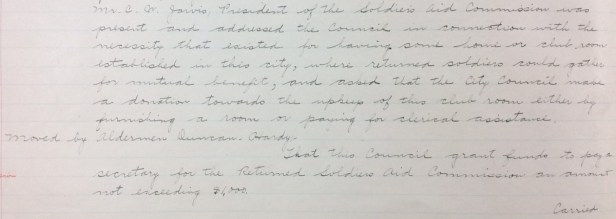 Mr. C. W. Jarvis, President of the Soldiers Aid Commission was
present and addressed the Council in connection with the
necessity that existed for having some home or club room
established in this city, where returned soldiers could gather
for mutual benefit, and asked that the City Council make
a donation towards the upkeep of this club room either by
furnishing a room or paying for clerical assistance.
Moved by Aldermen Duncan, Hardy.
That this Council grant funds to pay a
secretary for the Returned Soldiers Aid Commission an amount
not exceeding $1,000.
Carried